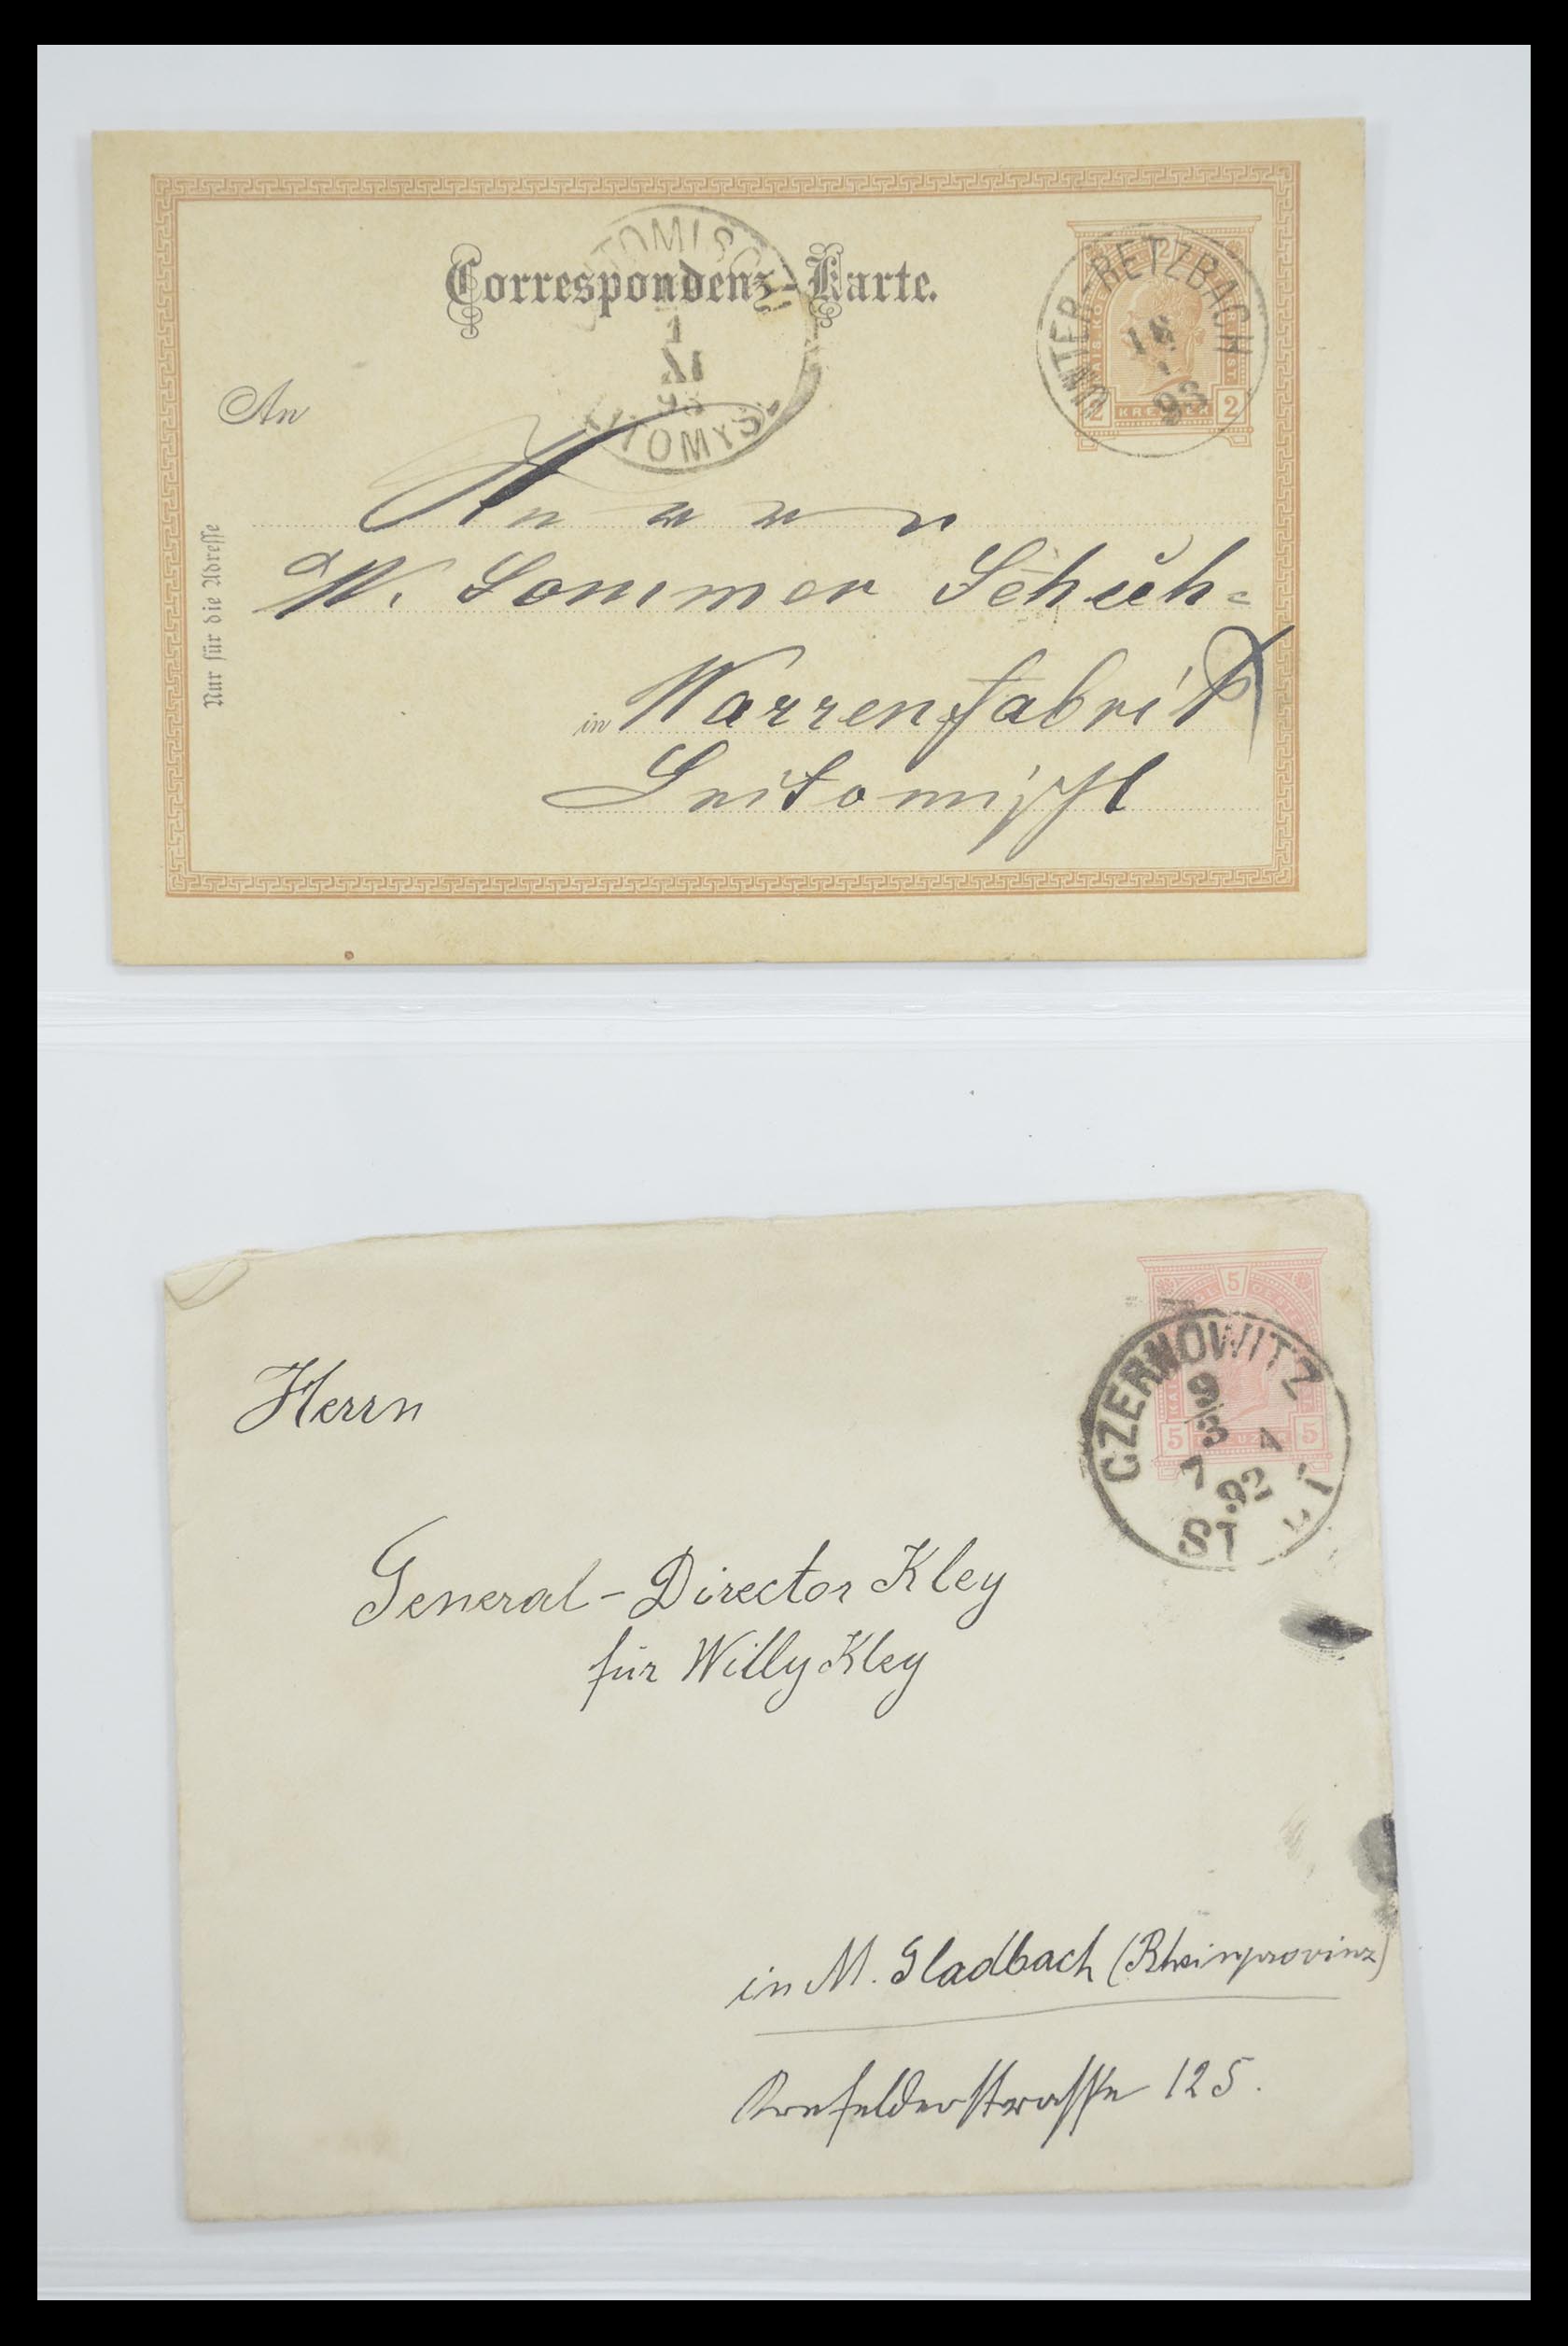 Correspondenz-Karte.
TOMISCHL
1
XI
93
LITOMYŠL
UNTER-RETZBACH
18
93
2
2 KREUZER 2
An
Nur für die Adresse
An
W. Sommer Schuh=
in Warrenfabrik
Leitomischl
5
5 KREUZER 5
CZERNOWITZ
9/3
7 A
92
Herrn
General-Director Kley
für Willy Kley
in M. Gladbach (Rheinprovinz)
Krefelderstrasse 125.